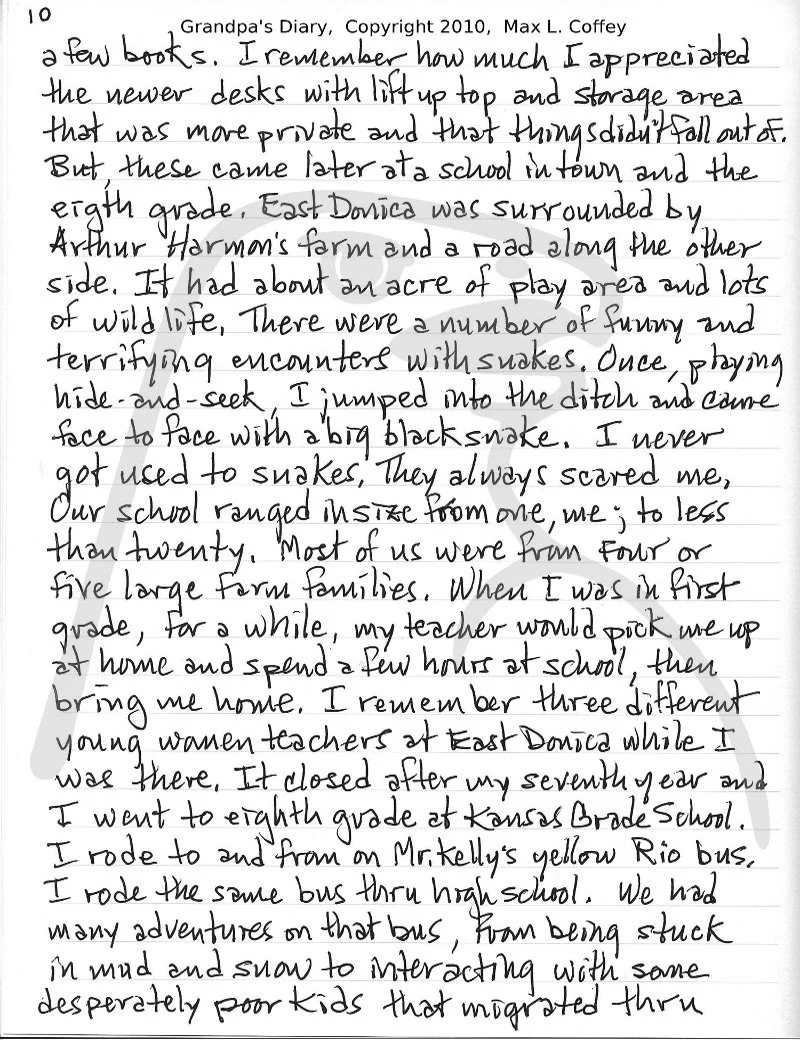 10
Grandpa's Diary, Copyright 2010, Max L. Coffey
a few books. I remember how much I appreciated
the newer desks with lift up top and storage area
that was more private and that things didn't fall out of.
But, these came later at a school in town and the
eigth grade. East Donica was surrounded by
Arthur Harmon's farm and a road along the other
side. It had about an acre of play area and lots
of wild life. There were a number of funny and
terrifying encounters with snakes. Once, playing
hide-and-seek, I jumped into the ditch and came
face to face with a big black snake. I never
got used to snakes, They always scared me,
Our school ranged in size from one, me; to less
than twenty. Most of us were from Four or
five large farm families. When I was in first
grade, for a while, my teacher would pick me up
at home and spend a few hours at school, then
bring me home. I remember three different
young women teachers at East Donica while I
was there. It closed after my seventh year and
I went to eighth grade at Kansas Grade School.
I rode to and from on Mr. Kelly's yellow Rio bus.
I rode the same bus thru high school. We had
many adventures on that bus, from being stuck
in mud and snow to interacting with some
desperately poor kids that migrated thru